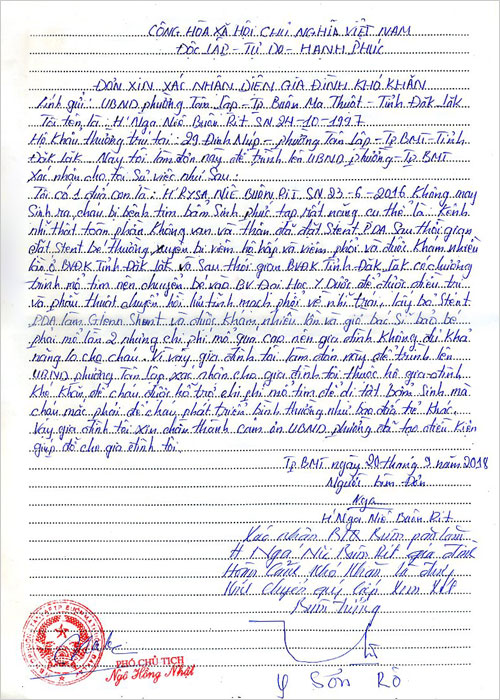 CỘNG HÒA XÃ HỘI CHỦ NGHĨA VIỆT NAM
ĐỘC LẬP - TỰ DO - HẠNH PHÚC
ĐƠN XIN XÁC NHẬN DIỆN GIA ĐÌNH KHÓ KHĂN
Kính gửi: UBND phường Tân Lập - Tp. Buôn Ma Thuột - Tỉnh Đăk Lăk
Tôi tên là: H' Nga Niê Buôn Rit SN 24-10-1997
Hộ khẩu thường trú tại: 29 Đinh Núp - phường Tân Lập - Tp BMT - Tỉnh
Đăk Lăk. Nay tôi làm đơn này để trình lên UBND phường - Tp BMT
Xác nhận cho tôi sự việc như sau:
Tôi có 1 đứa con là: H' RYSA NIÊ BUÔN RIT SN 23-6-2016 không may
sinh ra cháu bị bệnh tim bẩm sinh phức tạp rất nặng cụ thể là kênh
nhĩ thất toàn phần không van và thân đã đặt Stent PDA sau thời gian
đặt Stent bé thường xuyên bị viêm hô hấp và viêm phổi và được khám nhiều
lần ở BVĐK Tỉnh Đăk Lăk, và sau thời gian BVĐK Tỉnh Đăk Lăk có chương
trình mổ tim nên chuyển bé vào BV Đại Học Y Dược để được điều trị
và phẫu thuật chuyển hồi lưu tĩnh mạch phổi về nhĩ trái, lấy bỏ Stent
PDA làm Glenn Shunt và được khám nhiều lần và giờ bác sĩ bảo bé
phải mổ lần 2 nhưng chi phí mổ quá cao nên gia đình không đủ khả
năng lo cho cháu. Vì vậy gia đình tôi làm đơn này để trình lên
UBND phường Tân Lập xác nhận cho gia đình tôi thuộc hộ gia đình
khó khăn để cháu được hỗ trợ chi phí mổ tim để dị tật bẩm sinh mà
cháu mắc phải để cháu phát triển bình thường như bao đứa trẻ khác.
Vậy gia đình tôi xin chân thành cảm ơn UBND phường đã tạo điều kiện
giúp đỡ cho gia đình tôi.
Tp BMT ngày 20 tháng 9 năm 2018
Người làm Đơn
Nga
H' Nga Niê Buôn Rit
Xác nhận BTQ Buôn
H Nga Niê Buôn Rit gia đình
Hoàn cảnh khó khăn là đúng
Kính chuyển quý cấp xem xét
Buôn trưởng
PHÓ CHỦ TỊCH
Ngô Hồng Nhật
Y Sơn Rô